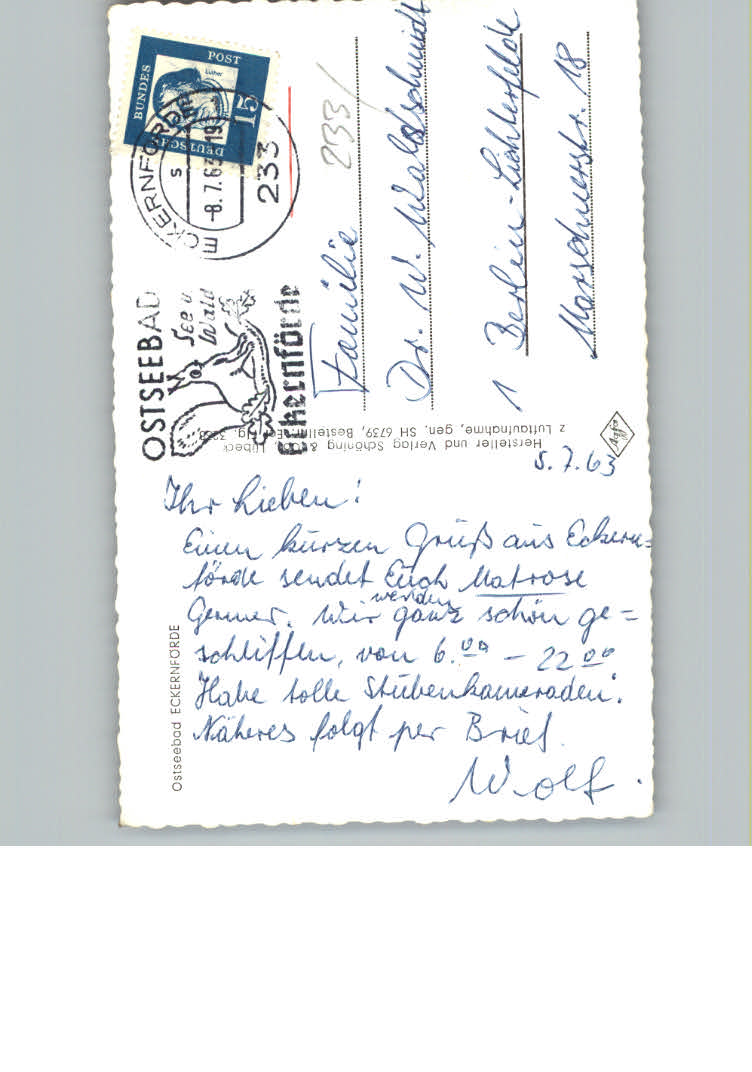 DEUTSCHE
BUNDES
POST
Luther
15
ECKERNFÖRDE
-8.7.63-19
233
OSTSEEBAD
See u
Wald
Eckernförde
233/
Familie
Dr. W. Waldschmidt
1 Berlin-Lichterfelde
Marschnerstr. 18
Hersteller und Verlag Schöning & Co., Lübeck
z Luftaufnahme, gen. SH 6739, Bestellnr.
Agfa
5.7.63
Ihr Lieben!
Einen kurzen Gruß aus Eckern=
förde sendet Euch Matrose
Germer. Wir werden ganz schön ge=
schliffen, von 6.00 – 22.00
Habe tolle Stubenkameraden.
Näheres folgt per Brief.
Wolf.
Ostseebad ECKERNFÖRDE